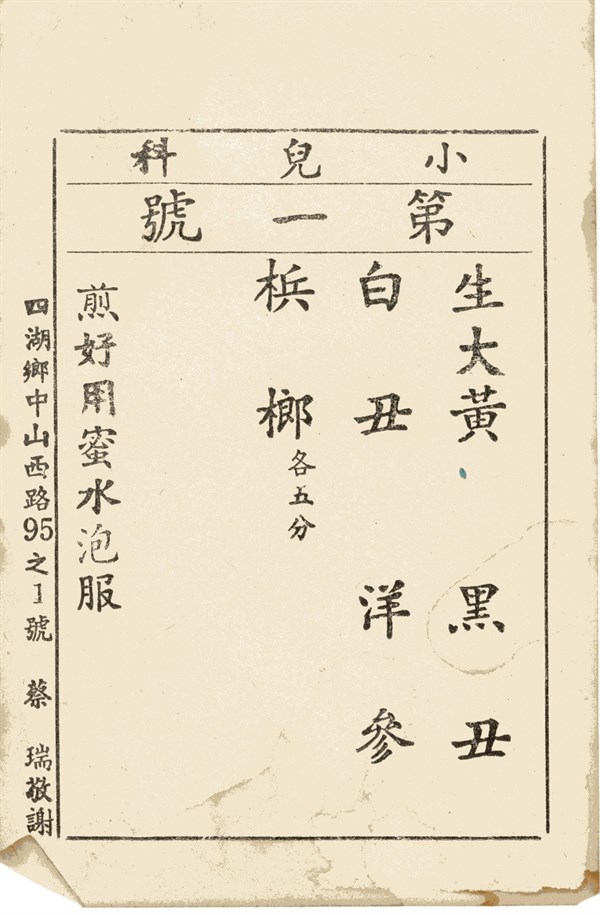 小兒科
第一號
生大黃 黑丑
白丑 洋參
梹榔各五分
煎好用蜜水泡服
四湖鄉中山西路95之1號 蔡 瑞敬謝